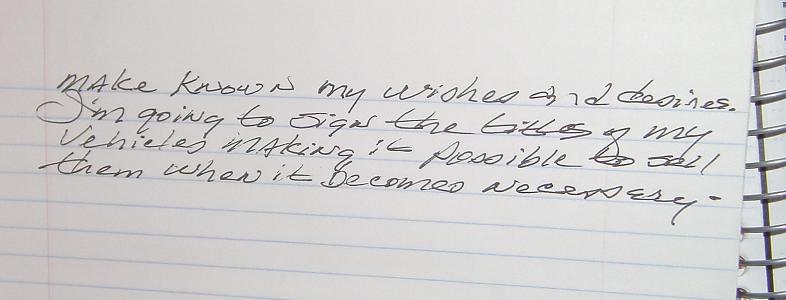 make known my wishes and desires.
I'm going to sign the titles of my
vehicles making it possible to sell
them when it becomes necessary.